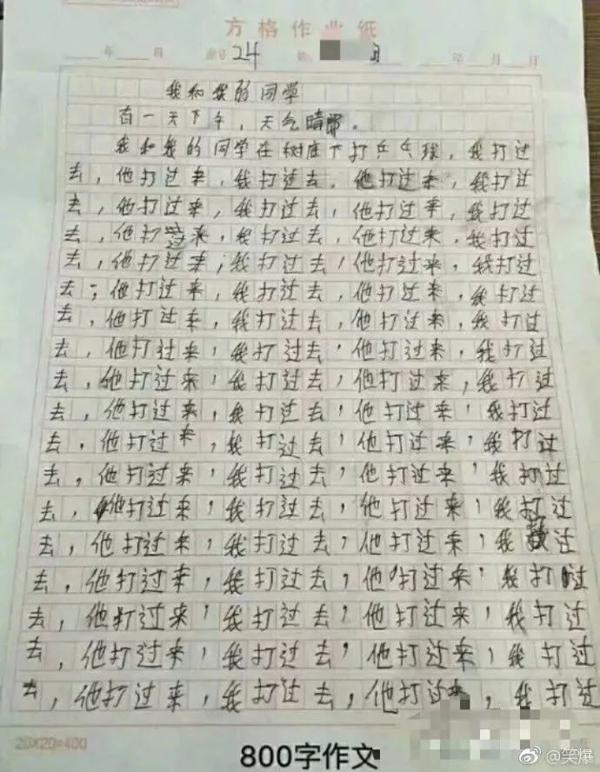 方格作业纸
年 月 24 日 年 月 日
我和我的同学
有一天下午，天气晴。
我和我的同学在树底下打乒乓球，我打过
去，他打过来，我打过去，他打过来，我打过
去，他打过来，我打过去，他打过来，我打过
去，他打过来，我打过去，他打过来，我打过
去，他打过来，我打过去，他打过来，我打过
去，他打过来，我打过去，他打过来，我打过
去，他打过来，我打过去，他打过来，我打过
去，他打过来，我打过去，他打过来，我打过
去，他打过来，我打过去，他打过来，我打过
去，他打过来，我打过去，他打过来，我打过
去，他打过来，我打过去，他打过来，我打过
去，他打过来，我打过去，他打过来，我打过
去，他打过来，我打过去，他打过来，我打过
去，他打过来，我打过去，他打过来，我过
去，他打过来，我打过去，他打过来，我打过
去，他打过来，我打过去，他打过来，我打过
去，他打过来，我打过去，他打过来，我打过
去，他打过来，我打过去，他打过来，我打过
20X20=400
800字作文
@笑爆